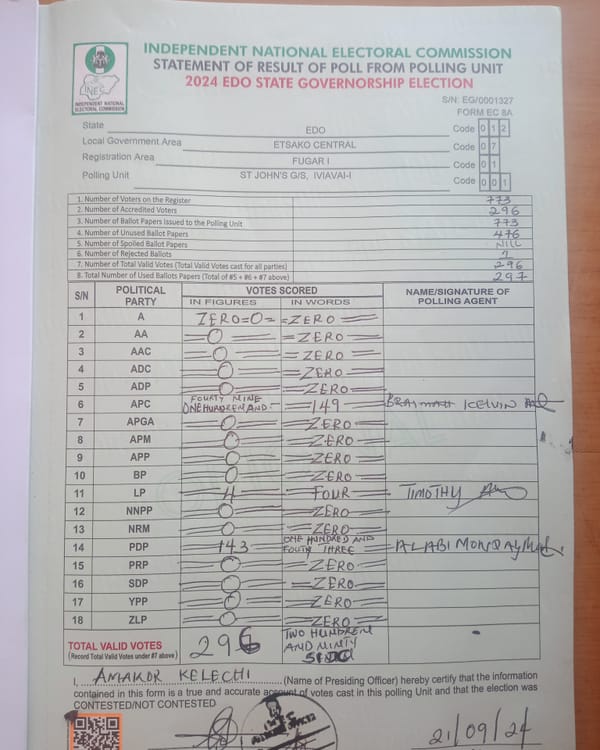 INDEPENDENT NATIONAL ELECTORAL COMMISSION
STATEMENT OF RESULT OF POLL FROM POLLING UNIT
2024 EDO STATE GOVERNORSHIP ELECTION
INEC
INDEPENDENT NATIONAL
ELECTORAL COMMISSION
S/N: EG/0001327
FORM EC 8A
State EDO Code 0 1 2
Local Government Area ETSAKO CENTRAL Code 0 7
Registration Area FUGAR I Code 0 1
Polling Unit ST JOHN'S G/S, IVIAVAI-I Code 0 0 1
1. Number of Voters on the Register 773
2. Number of Accredited Voters 296
3. Number of Ballot Papers Issued to the Polling Unit 773
4. Number of Unused Ballot Papers 476
5. Number of Spoiled Ballot Papers NILL
6. Number of Rejected Ballots
7. Number of Total Valid Votes (Total Valid Votes cast for all parties) 296
8. Total Number of Used Ballots Papers (Total of #5 + #6 + #7 above) 297
S/N POLITICAL PARTY VOTES SCORED NAME/SIGNATURE OF POLLING AGENT
IN FIGURES IN WORDS
1 A ZERO=0= =ZERO
2 AA 0 =ZERO
3 AAC 0 =ZERO
4 ADC 0 =ZERO
5 ADP 0 ZERO
6 APC FOURTY NINE ONE HUNDREN AND 149 BRAIMAH KELVIN
7 APGA 0 ZERO
8 APM 0 ZERO
9 APP 0 ZERO
10 BP 0 ZERO
11 LP 4 FOUR TIMOTHY
12 NNPP 0 ZERO
13 NRM 0 ZERO
14 PDP 143 ONE HUNDRED AND FOUTY THREE ALABI MONDAY
15 PRP 0 ZERO
16 SDP 0 ZERO
17 YPP 0 ZERO
18 ZLP 0 ZERO
TOTAL VALID VOTES 296 TWO HUNDREN AND NINTY
(Record Total Valid Votes under #7 above)
I, AMAKOR KELECHI (Name of Presiding Officer) hereby certify that the information
contained in this form is a true and accurate account of votes cast in this polling Unit and that the election was
CONTESTED/NOT CONTESTED
21/09/24